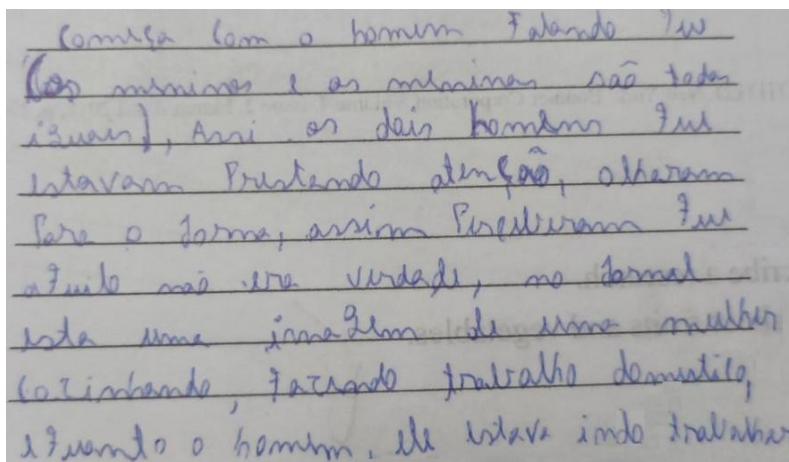 Começa com o homem falando que
(os meninos e as meninas são todos
iguais), Assi os dois homens que
estavam Prestando atenção, olharam
Para o Jorna, assim Perceberam que
aquilo não era verdade, no Jornal
esta uma inmagem de uma mulher
cozinhando, fazendo trabalho domestico,
equanto o homem. ele estava indo trabalhar